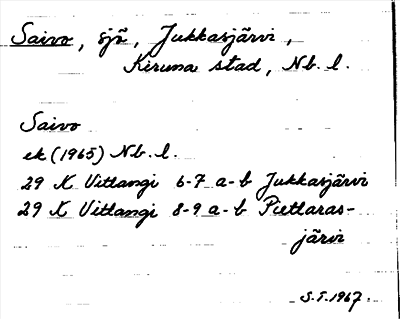 Saivo, sjö, Jukkasjärvi,
Kiruna stad, Nb. l.
Saivo
ek (1965) Nb. l.
29 K Vittangi 6-7 a-b Jukkasjärvi
29 K Vittangi 8-9 a-b Piettaras-
järvi
S.F. 1967.